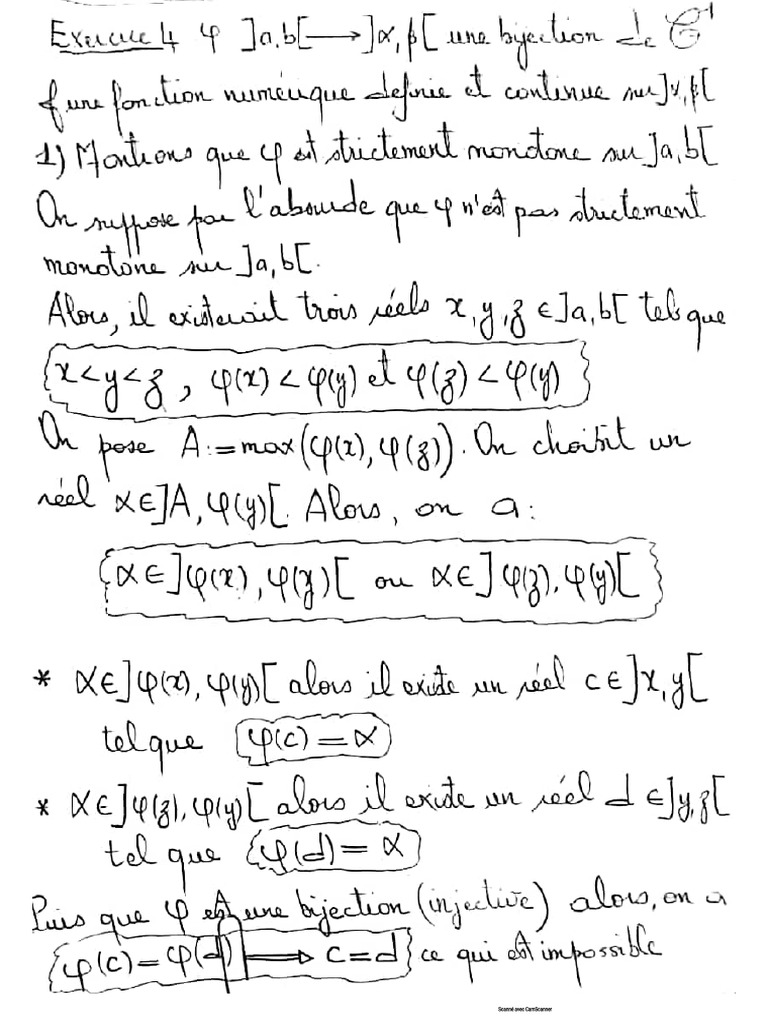 Exercice 4 φ ]a,b[⟶]α,β[ une bijection de C¹
f une fonction numérique definie et continue sur ]α,β[
1) Montrons que φ est strictement monotone sur ]a,b[
On suppose par l'absurde que φ n'est pas strictement
monotone sur ]a,b[.
Alors, il existerait trois réels x,y,z ∈]a,b[ tels que
x<y<z, φ(x)<φ(y) et φ(z)<φ(y)
On pose A:=max(φ(x),φ(z)). On choisit un
réel α∈]A,φ(y)[. Alors, on a:
α∈]φ(x),φ(y)[ ou α∈]φ(z),φ(y)[
* α∈]φ(x),φ(y)[ alors il existe un réel c∈]x,y[
tel que φ(c)=α
* α∈]φ(z),φ(y)[ alors il existe un réel d∈]y,z[
tel que φ(d)=α
Puis que φ est une bijection (injective) alors, on a
φ(c)=φ(d) ⟹ c=d ce qui est impossible
Scanné avec CamScanner